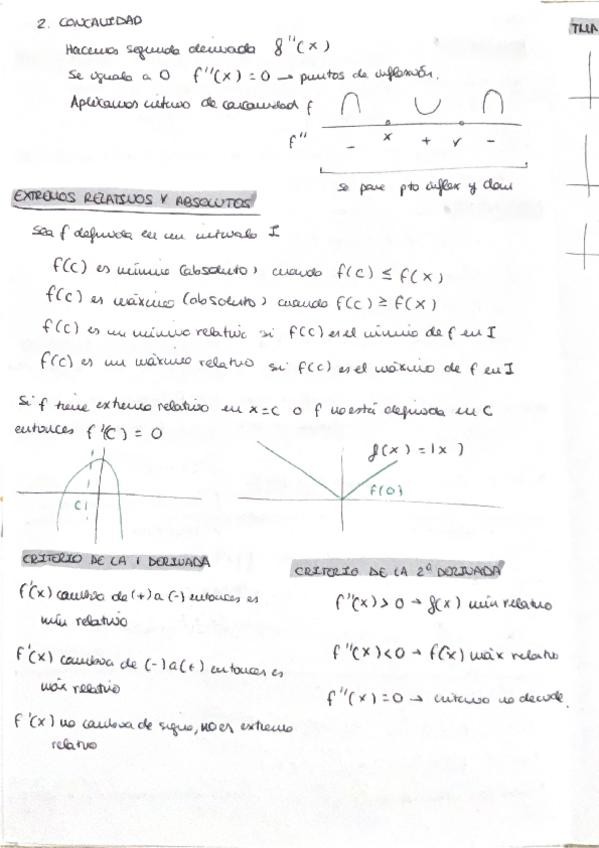 2. CONCAVIDAD
Hacemos segunda derivada f''(x)
Se iguala a 0 f''(x) = 0 → puntos de inflexión.
Aplicamos criterio de concavidad f
f'' - x + v -
se pone pto inflex y dom
TMA
EXTREMOS RELATIVOS Y ABSOLUTOS
Sea f definida en un intervalo I
f(c) es mínimo (absoluto) cuando f(c) ≤ f(x)
f(c) es máximo (absoluto) cuando f(c) ≥ f(x)
f(c) es un mínimo relativo si f(c) es el mínimo de f en I
f(c) es un máximo relativo si f(c) es el máximo de f en I
Si f tiene extremo relativo en x=c o f no está definida en c
entonces f'(c) = 0
f(x) = |x)
f(0)
c
CRITERIO DE LA 1 DERIVADA
f'(x) cambia de (+) a (-) entonces es
mín relativo
f'(x) cambia de (-) a (+) entonces es
máx relativo
f'(x) no cambia de signo, NO es extremo
relativo
CRITERIO DE LA 2ª DERIVADA
f''(x) > 0 → f(x) mín relativo
f''(x) < 0 → f(x) máx relativo
f''(x) = 0 → criterio no decide.